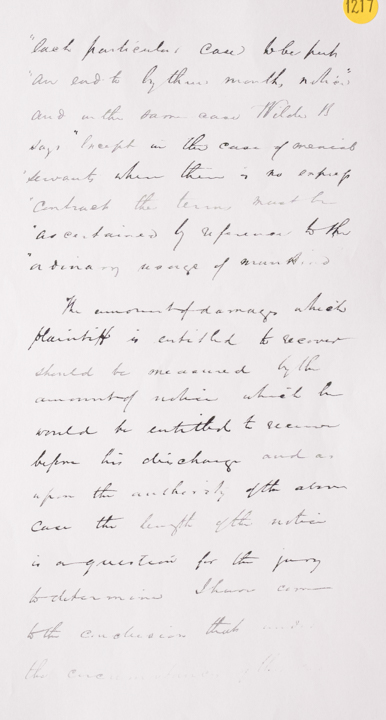 1217
"Each particular case to be put
"an end to by three months notice"
and in the same case Wilde B
says "Except in the case of menial
"servants when there is no express
"contract the terms must be
"ascertained by reference to the
"ordinary usage of mankind
The amount of damages which
plaintiff is entitled to recover
should be measured by the
amount of notice which he
would be entitled to receive
before his discharge and as
upon the authority of the above
case the length of the notice
is a question for the jury
to determine I have come
to the conclusion that under
the circumstances of the